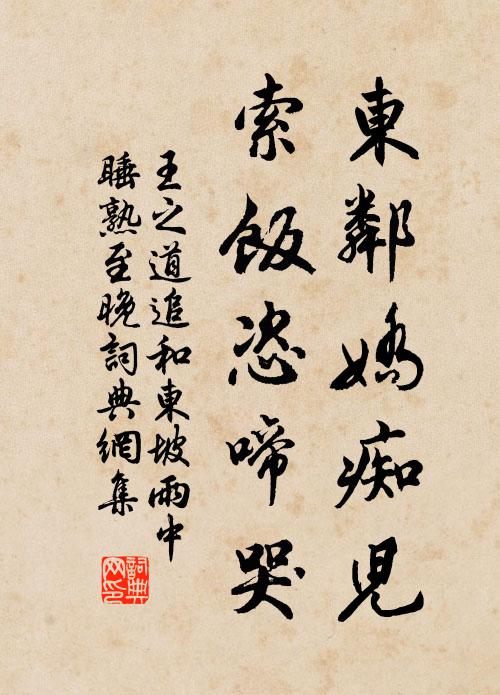 東鄰嬌痴児
索飯恣啼哭
王之道追和東坡雨中
睡熟至晚詞典網集
詞典
网印